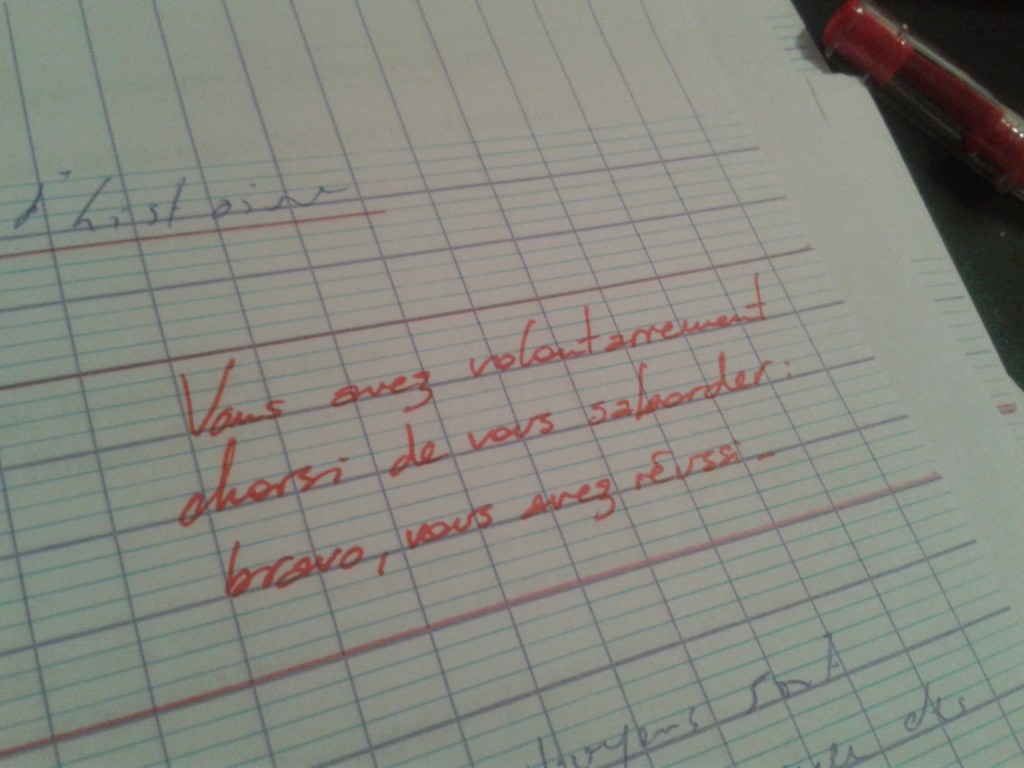 d'histoire
Vous avez volontairement
choisi de vous saborder :
bravo, vous avez réussi.
sont
des